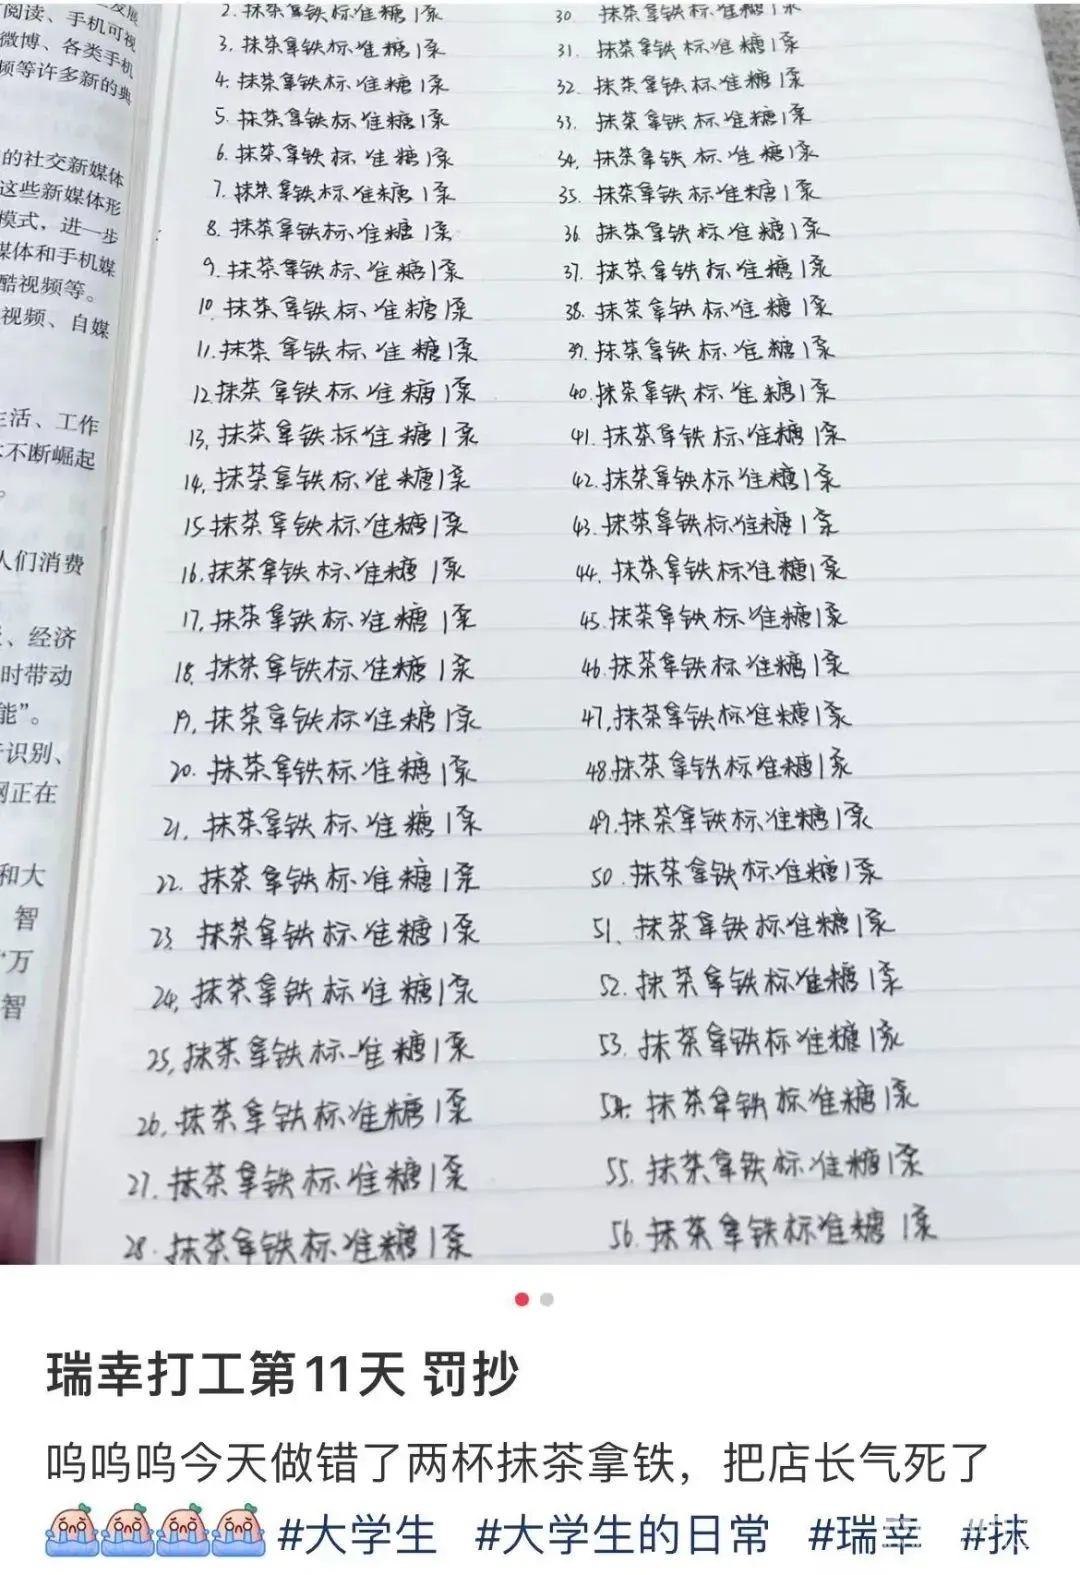 发展
阅读、手机可视
微博、各类手机
频等许多新的典
的社交新媒体
这些新媒体形
模式，进一步
媒体和手机媒
酷视频等。
视频、自媒
生活、工作
不断崛起
。
人们消费
、经济
时带动
能”。
识别、
网正在
和大
智
“万
智
2. 抹茶拿铁标准糖1泵
3. 抹茶拿铁标准糖1泵
4. 抹茶拿铁标准糖1泵
5. 抹茶拿铁标准糖1泵
6. 抹茶拿铁标准糖1泵
7. 抹茶拿铁标准糖1泵
8. 抹茶拿铁标准糖1泵
9. 抹茶拿铁标准糖1泵
10. 抹茶拿铁标准糖1泵
11. 抹茶拿铁标准糖1泵
12. 抹茶拿铁标准糖1泵
13. 抹茶拿铁标准糖1泵
14. 抹茶拿铁标准糖1泵
15. 抹茶拿铁标准糖1泵
16. 抹茶拿铁标准糖1泵
17. 抹茶拿铁标准糖1泵
18. 抹茶拿铁标准糖1泵
19. 抹茶拿铁标准糖1泵
20. 抹茶拿铁标准糖1泵
21. 抹茶拿铁标准糖1泵
22. 抹茶拿铁标准糖1泵
23. 抹茶拿铁标准糖1泵
24. 抹茶拿铁标准糖1泵
25. 抹茶拿铁标准糖1泵
26. 抹茶拿铁标准糖1泵
27. 抹茶拿铁标准糖1泵
28. 抹茶拿铁标准糖1泵
30. 抹茶拿铁标准糖1泵
31. 抹茶拿铁标准糖1泵
32. 抹茶拿铁标准糖1泵
33. 抹茶拿铁标准糖1泵
34. 抹茶拿铁标准糖1泵
35. 抹茶拿铁标准糖1泵
36. 抹茶拿铁标准糖1泵
37. 抹茶拿铁标准糖1泵
38. 抹茶拿铁标准糖1泵
39. 抹茶拿铁标准糖1泵
40. 抹茶拿铁标准糖1泵
41. 抹茶拿铁标准糖1泵
42. 抹茶拿铁标准糖1泵
43. 抹茶拿铁标准糖1泵
44. 抹茶拿铁标准糖1泵
45. 抹茶拿铁标准糖1泵
46. 抹茶拿铁标准糖1泵
47. 抹茶拿铁标准糖1泵
48. 抹茶拿铁标准糖1泵
49. 抹茶拿铁标准糖1泵
50. 抹茶拿铁标准糖1泵
51. 抹茶拿铁标准糖1泵
52. 抹茶拿铁标准糖1泵
53. 抹茶拿铁标准糖1泵
54. 抹茶拿铁标准糖1泵
55. 抹茶拿铁标准糖1泵
56. 抹茶拿铁标准糖1泵
瑞幸打工第11天 罚抄
呜呜呜今天做错了两杯抹茶拿铁，把店长气死了
#大学生 #大学生的日常 #瑞幸 #抹